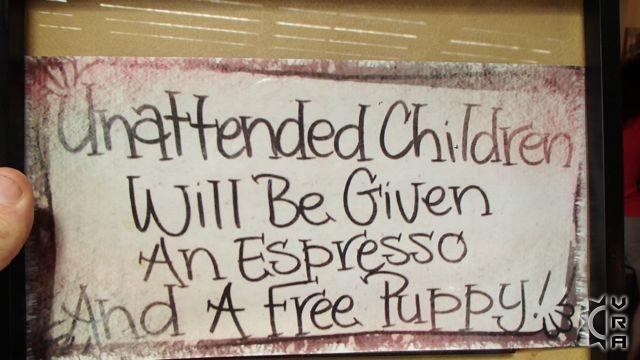 Unattended Children
Will Be Given
An Espresso
And A Free Puppy!
VRA